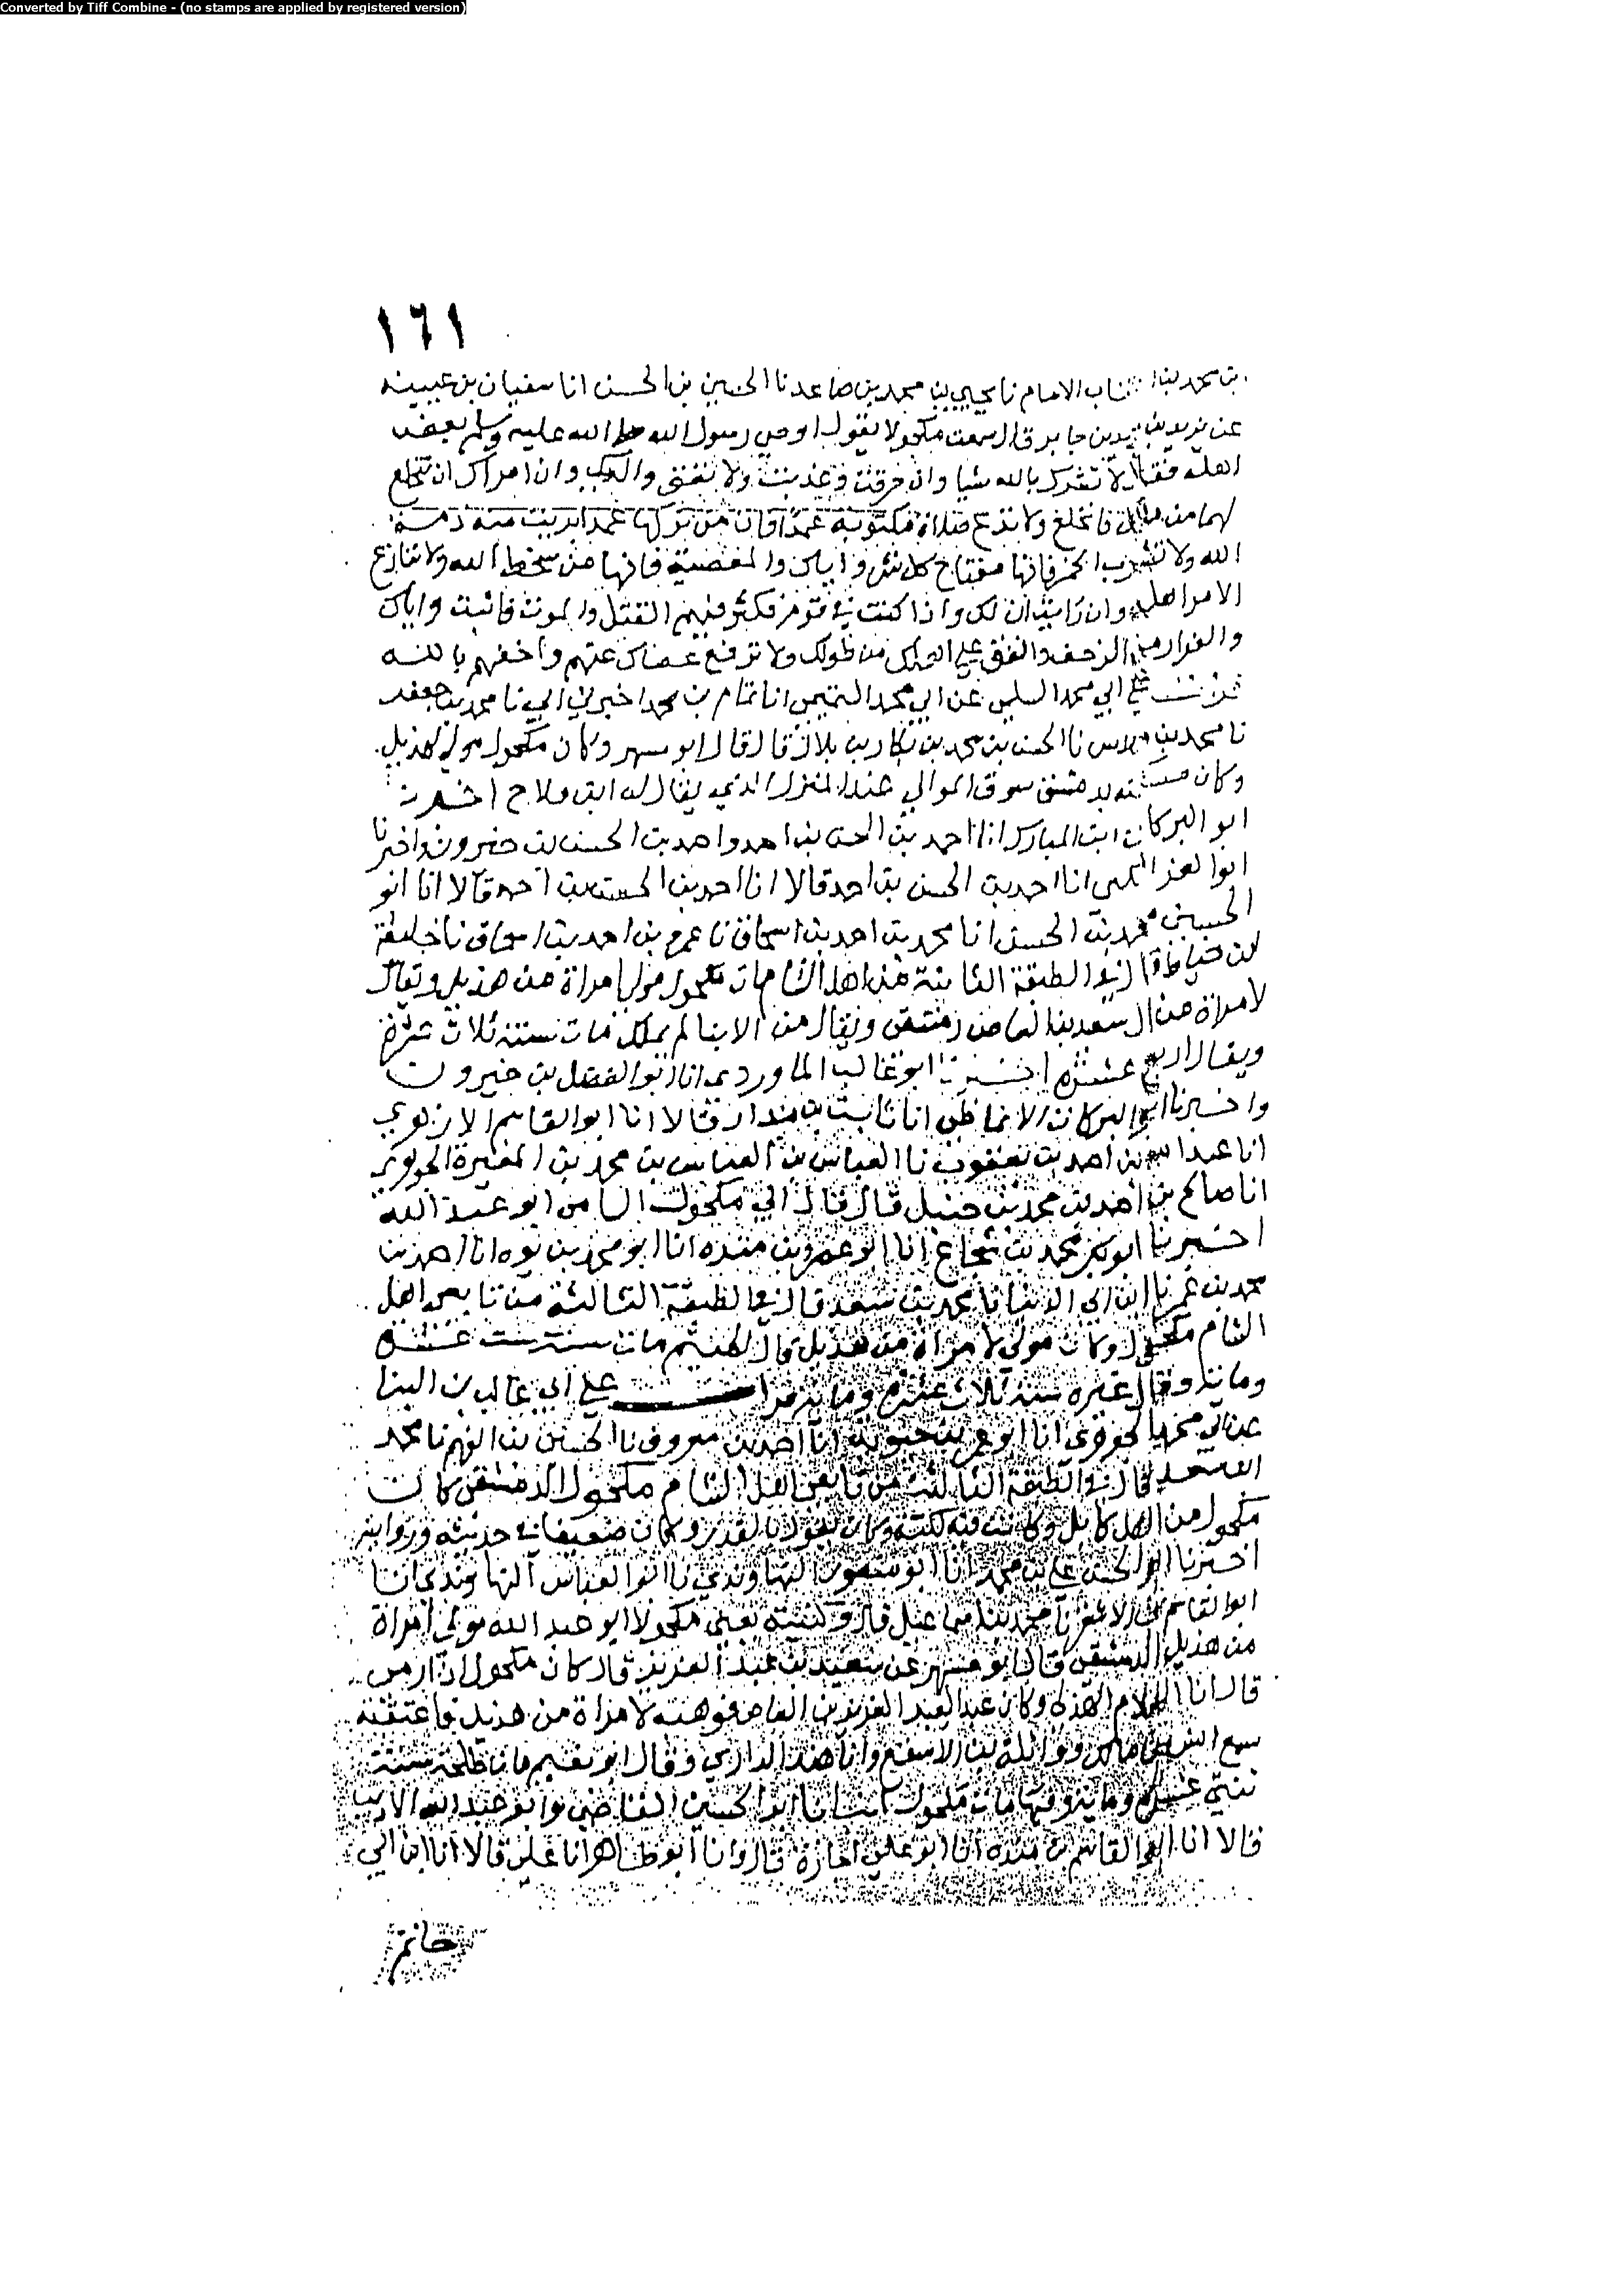 Converted by Tiff Combine - (no stamps are applied by registered version)
١٦١
بن محمد بن الامام نا يحيى بن محمد بن صاعد نا الحسين بن الحسن انا سفيان بن عيينه
عن يزيد بن يزيد بن جابر قال سمعت مكحولا يقول اوصى رسول الله صلى الله عليه وسلم بعض
اهله فقال لا تشرك بالله شيا وان حرقت وعذبت ولا تعص والديك وان امراك ان تخلع
لهما من مالك فاخلع ولا تدع صلاة مكتوبة عمدا فان من تركها عمدا بريت منه ذمة
الله ولا تشرب الخمر فانها مفتاح كل شر واياك والمعصية فانها من سخط الله ولا تنازع
الامر اهله وان رايت ان لك واذا كنت في قوم فكثر فيهم القتل والموت فاثبت واياك
والفرار من الزحف وانفق على اهلك من طولك ولا ترفع عصاك عنهم واخفهم بالله
قرات على ابي محمد السلمي عن ابي محمد التميمي انا تمام بن محمد اخبرني ابي نا محمد بن جعفر
نا محمد بن نا الحسن بن محمد بن بكار بن بلال قال قال ابو مسهر وكان مكحول مولى لهذيل
وكان مسكنه بدمشق سوق الموالي عند المنزل الذي يقال له ابن ملاح اخبرنا
ابو البركات ابن المبارك انا احمد بن الحسن بن احمد واحمد بن الحسن بن خيرون واخبرنا
ابو العز انا احمد بن الحسن بن احمد قالا انا احمد بن الحسن بن احمد قالا انا ابو
الحسين محمد بن الحسن انا محمد بن احمد بن اسحاق نا عمر بن احمد بن اسحاق نا خليفة
بن خياط قال في الطبقة الثانية من اهل الشامات مكحول مولى امراة من هذيل ويقال
لامراة من ال سعيد بن العاص دمشقي ويقال من الابنا لم يملك مات سنة ثلاث عشرة
ويقال اربع عشرة اخبرنا ابو غالب الماوردي انا ابو الفضل بن خيرون
واخبرنا ابو البركات الانماطي انا ثابت بن بندار قالا انا ابو القاسم الازهري
انا عبد الله بن احمد بن يعقوب نا العباس بن العباس بن محمد بن المغيرة الجوهري
انا صالح بن احمد بن محمد بن حنبل قال قال ابي مكحول الشامي ابو عبد الله
اخبرنا ابو بكر محمد بن شجاع انا ابو عمرو بن منده انا ابو محمد بن يوه انا احمد بن
محمد بن عمر نا ابن ابي الدنيا نا محمد بن سعد قال في الطبقة الثالثة من تابعي اهل
الشام مكحول وكان مولى لامراة من هذيل قال الهيثم مات سنة ست عشرة
ومائة وقال غيره سنة ثلاث عشرة ومائة قرات على ابي غالب بن البنا
عن ابي محمد الجوهري انا ابو عمر بن حيويه انا احمد بن معروف نا الحسين بن الفهم نا محمد
ابن سعد قال في الطبقة الثالثة من تابعي اهل الشام مكحول الدمشقي كان
مكحول من اهل كابل وكانت فيه لكنة وكان يقول بالقدر وكان ضعيفا في حديثه وروايته
اخبرنا ابو الحسن علي بن محمد انا ابو منصور النهاوندي نا ابو العباس النهاوندي انا
ابو القاسم بن الاشقر نا محمد بن اسماعيل قال وكنيته يعني مكحولا ابو عبد الله مولى امراة
من هذيل الدمشقي قال ابو مسهر عن سعيد بن عبد العزيز قال كان مكحول اذا رمى
قال انا الغلام الهذلي وكان عبدا لعبد العزيز بن العاص فوهبه لامراة من هذيل فاعتقته
سمع انس بن مالك وواثلة بن الاسقع وابا هند الداري وقال ابو نعيم مات طلحة سنة
ثنتي عشرة ومائة وفيها مات مكحول انبانا ابو الحسين القاضي وابو عبد الله الاديب
قالا انا ابو القاسم بن منده انا ابو علي اجازة قال وانا ابو طاهر انا علي قالا انا ابن ابي
حاتم